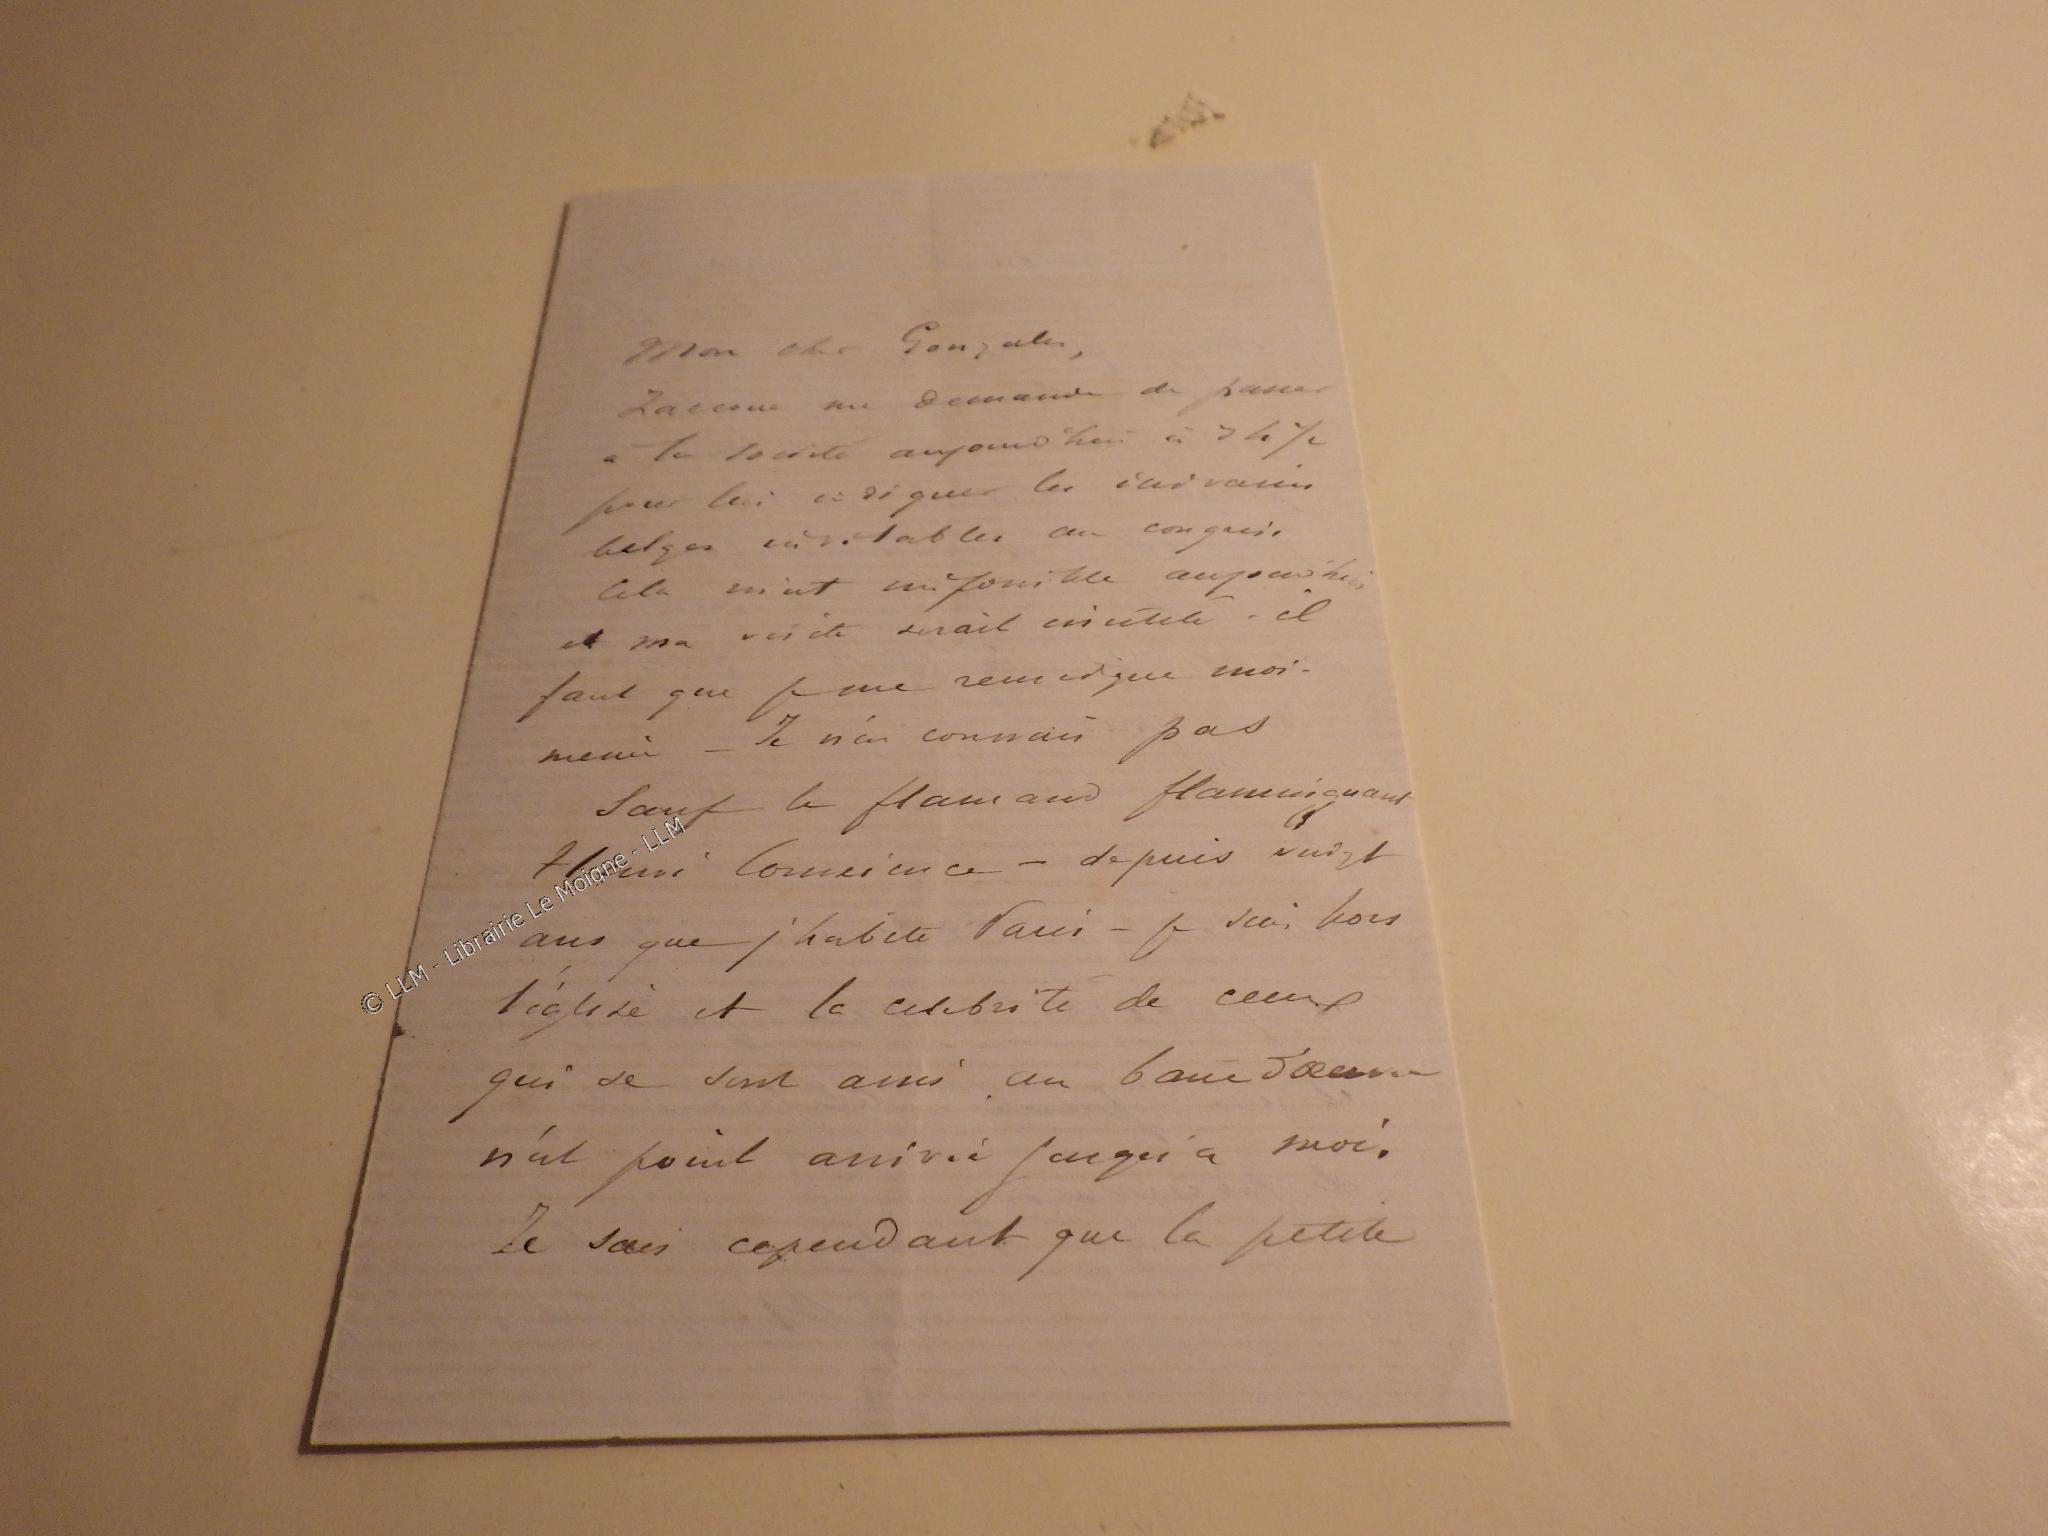 Mon cher Gonzalès,
Zaccone me demande de passer
à la société aujourd'hui à 3 h 1/2
pour lui indiquer les écrivains
belges invitables au congrès.
Cela m'est impossible aujourd'hui
et ma visite serait inutile - il
faut que je me renseigne moi-
même - Je n'en connais pas
Sauf le flamand flamingant
Henri Conscience - depuis vingt
ans que j'habite Paris - je suis hors
l'église et la célébrité de ceux
qui se sont assis au banc d'oeuvre
n'est point arrivée jusqu'à moi.
Je sais cependant que la petite
© LLM - Librairie Le Moigne - LLM